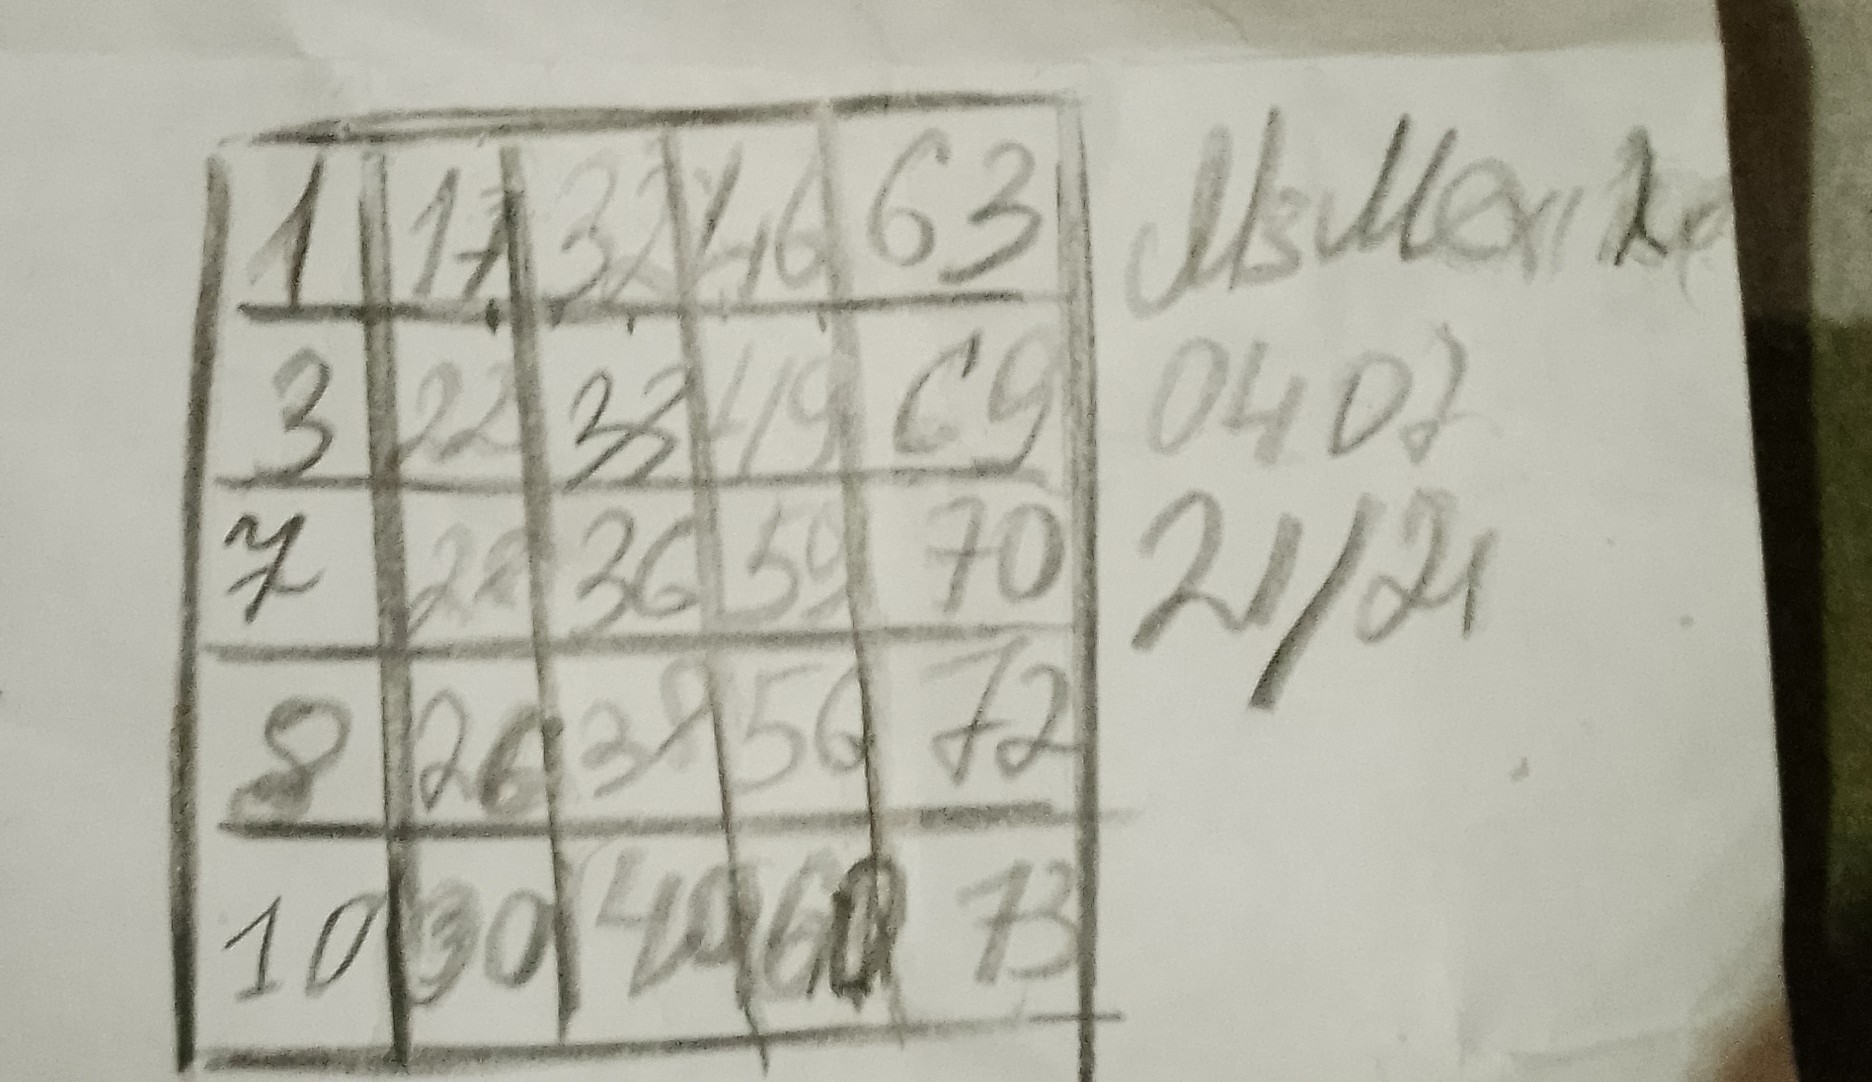 1 17 32 46 63
3 22 33 49 69
7 22 36 59 70
8 26 38 56 72
10 30 40 60 73
0407
21/21